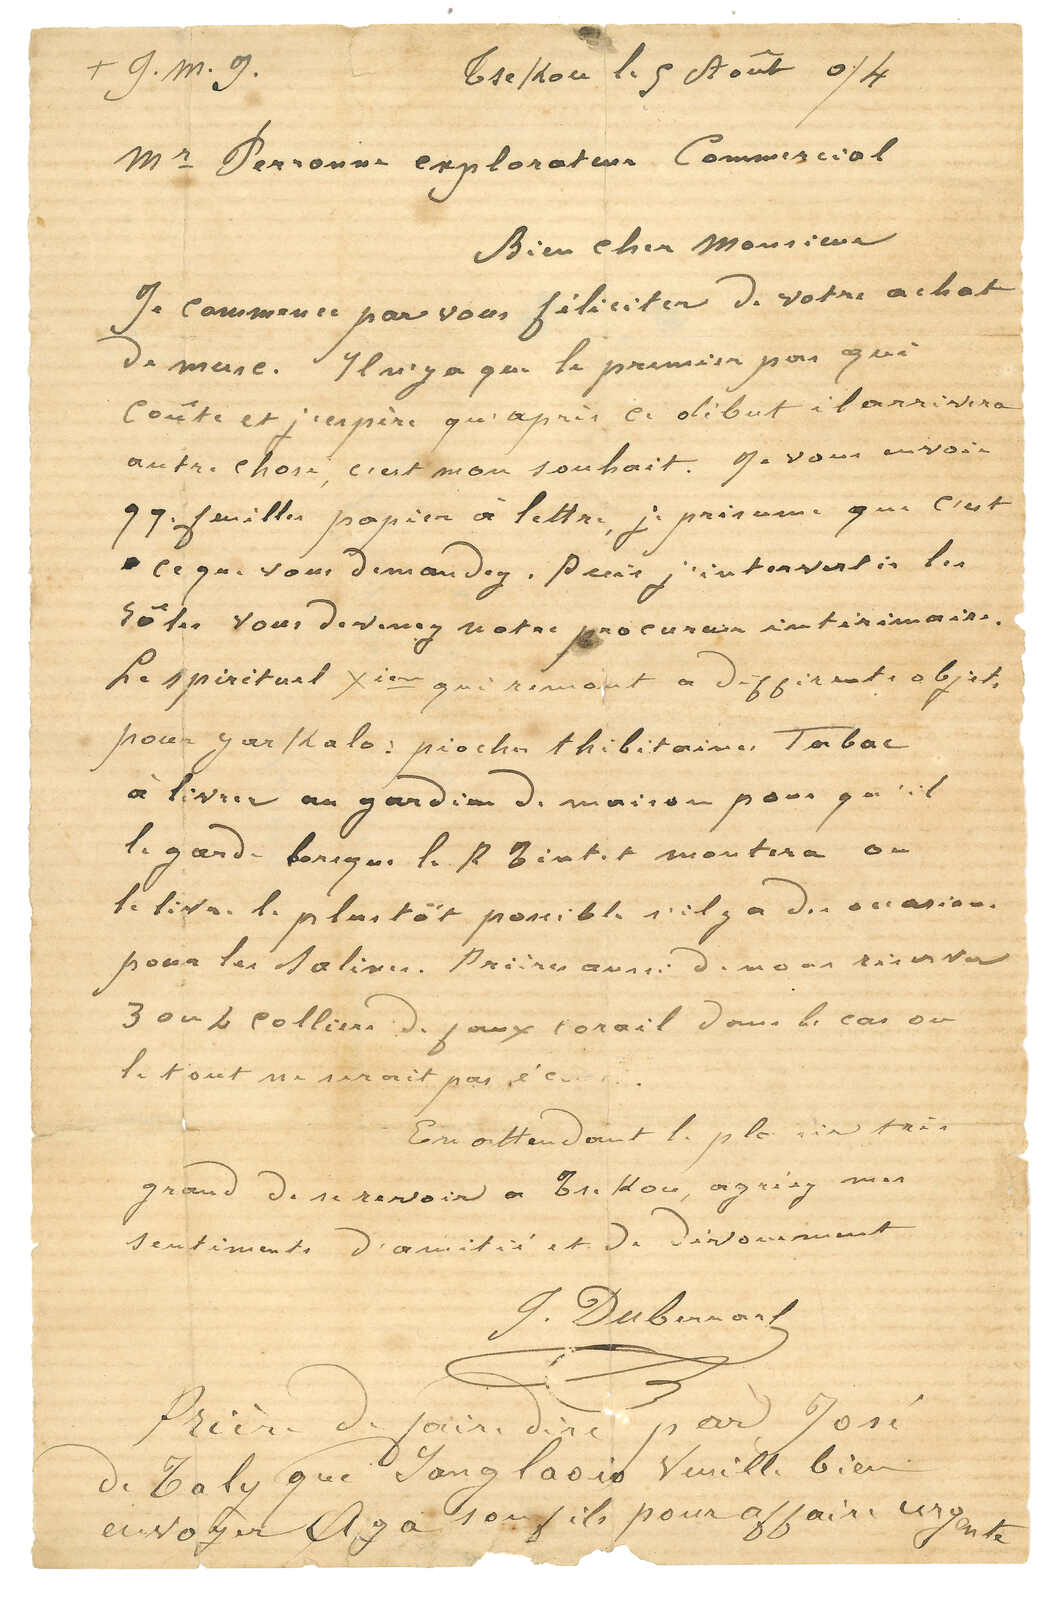 + J. M. J. Tsekou le 5 Août 0/4
Mr Perronne explorateur Commercial
Bien cher Monsieur
Je commence par vous féliciter de votre achat
de musc. Il n'y a que le premier pas qui
coûte et j'espère qu'après ce début il arrivera
autre chose, c'est mon souhait. Je vous envoie
97 feuilles papier à lettre, je présume que c'est
ce que vous demandez. Puis j'intervertis les
rôles vous devenez notre procureur intérimaire.
Le spirituel Xien qui remont a differents objets
pour Yarkalo : pioches thibitaines Tabac
à livrer au gardien de maison pour qu'il
le garde lorsque le P. Tintet montera ou
le livre le plustôt possible s'il y a des occasions
pour les Salines. Prière aussi de nous réserver
3 ou 4 colliers de faux corail dans le cas ou
le tout ne serait pas
En attendant le plaisir très
grand de se revoir a Tsekou, agréez mes
sentiments d'amitié et de dévouement
J. Dubernard
Prière de faire dire par José
de Taly que Sanglaoio veuille bien
envoyer Aga son fils pour affaire urgente